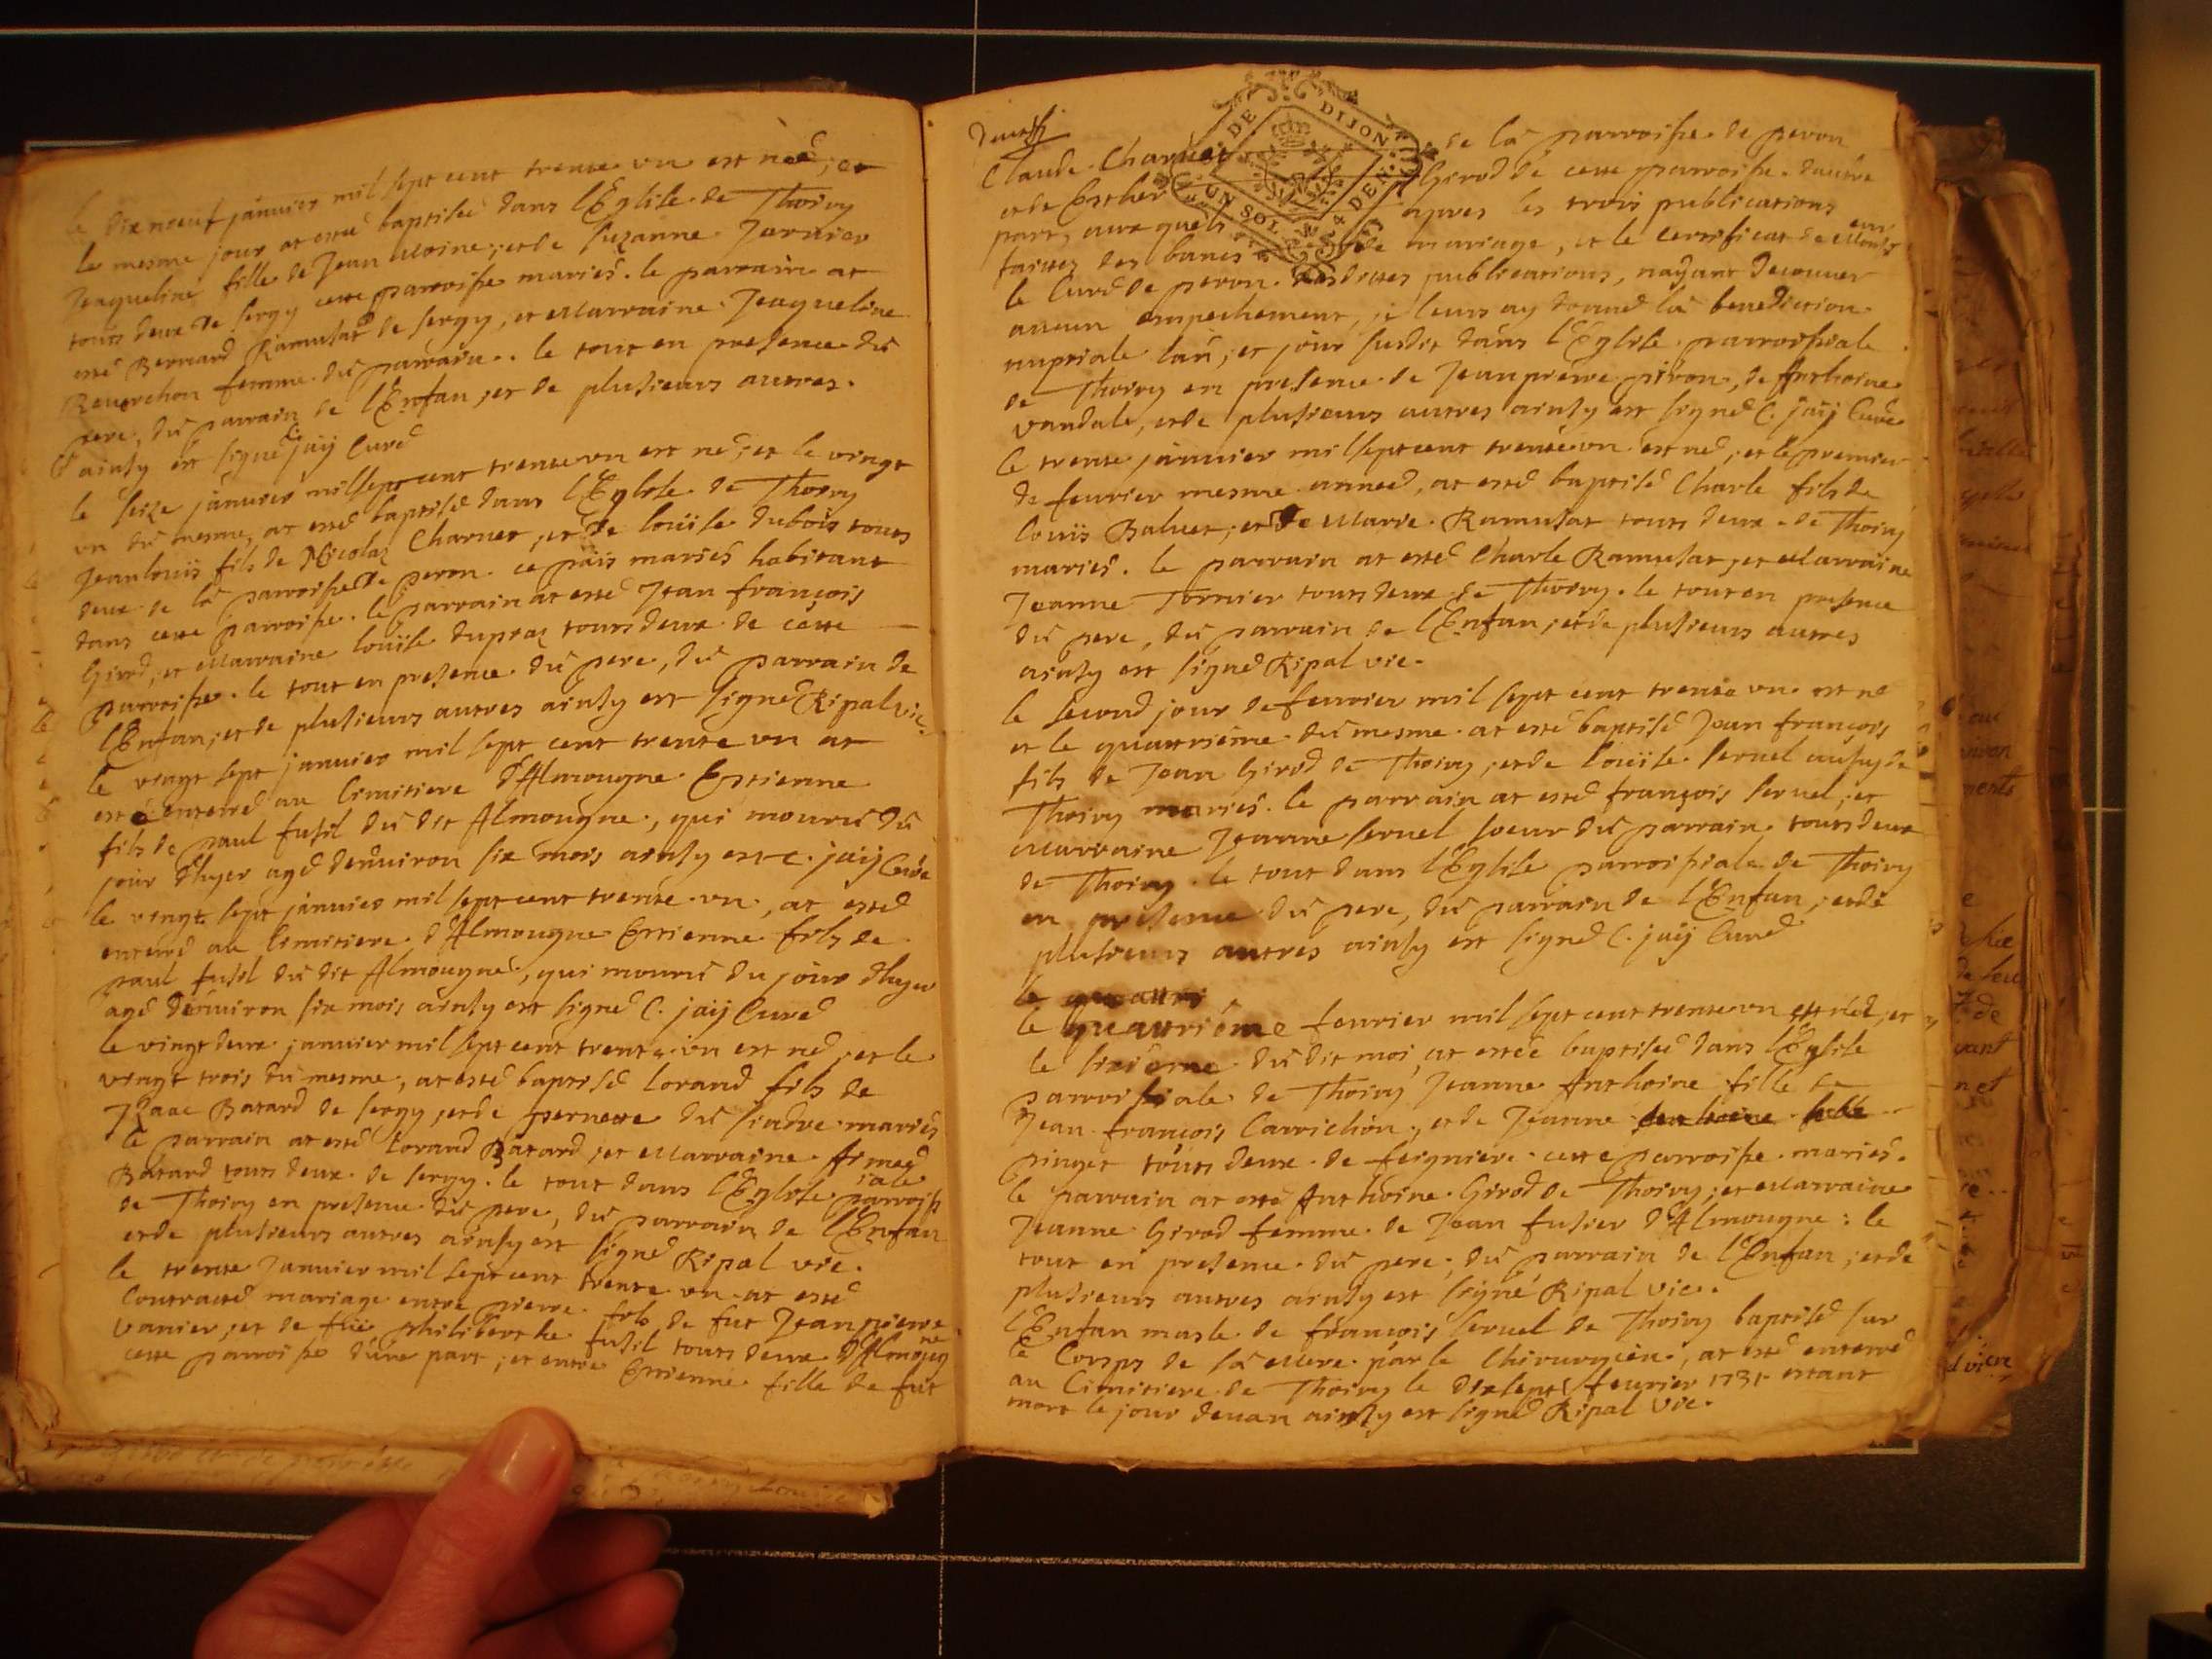 le dix neuf janvier mil sept cent trente un est née, et
le mesme jour at estée baptisée dans l'Eglise de Thoiry
Jaqueline fille de Jean Moine, et de Suzanne
touts deux de Sergy cette parroisse mariés. le parrain at
esté Bernard Ramusat de Sergy, et Marraine Jaqueline
Reuerchon femme du parrain. le tout en presence du
pere, du parrain de l'Enfan, et de plusieurs autres.
ainsy est signé C. jaij Curé
le seize janvier mil sept cent trente un est né, et le vingt
un du mesme, at esté baptisé dans l'Eglise de Thoiry
Jean louis fils de Nicolaz Charuet, et de louise dubois touts
deux de la parroisse de peron ce païs mariés habitant
dans cette parroisse. le parrain at esté Jean françois
Girod, et Marraine louise dupraz touts deux de cette
parroisse. le tout en presence du pere, du parrain de
l'Enfan, et de plusieurs autres ainsy est signé Ripal vic.
le vingt sept janvier mil sept cent trente un at
esté enterré au Cimitiere d'Almougne Estienne
fils de paul fusil du dit Almougne, qui mourut du
jour d'hyer agé denuiron six mois ainsy est C. jaij Curé
le vingt sept janvier mil sept cent trente un, at esté
enterré au Cimitiere d'Almougne Estienne fils de
paul fusil du dit Almougne, qui mourut du jour dhyer
agé denuiron six mois ainsy est signé C. jaij Curé
le vingt deux janvier mil sept cent trente un est né, et le
vingt trois du mesme, at esté baptisé lorand fils de
Isaac Batard de Sergy, et de pernette du mariés
le parrain at esté lorand Batard, et Marraine Aimeé
Batard touts deux de Sergy. le tout dans l'Eglise parroissiale
de Thoiry en presence du pere, du parrain de l'Enfan
et de plusieurs autres ainsy est signé Ripal vic.
le trente janvier mil sept cent trente un at esté
Contracté mariage entre pierre fils de fut Jean pierre
vanier, et de fuë philiberthe fusil touts deux d'Almougne
cette parroisse d'une part, et entre Estienne fille de fut
Claude Charuet de la parroisse de peron
et de Esther Girod de cette parroisse d'autre
part, aux quels apres les trois publications
faittes des bancs de mariage, et le certificat de Monsr
le Curé de peron des dittes publications, nayant decouuer
aucun empechement, je leurs ay donné la benediction
nuptiale lan, et jour susdit dans l'Eglise parroissiale
de Thoiry en presence de Jean pierre piron, de Anthoine
vandale, et de plusieurs autres ainsy est signé C. jaij Curé
le trente janvier mil sept cent trente un est né, et le premier
de feurier mesme anneé, at esté baptisé Charle fils de
louis Baluet, et de Marie Ramusat touts deux de Thoiry
mariés. le parrain at esté Charle Ramusat, et Marraine
Jeanne Tornier touts deux de Thoiry. le tout en presence
du pere, du parrain de l'Enfan, et de plusieurs autres
ainsy est signé Ripal vic.
le second jour de feurier mil sept cent trente un est né
et le quattrieme du mesme at esté baptisé Jean françois
fils de Jean Girod de Thoiry, et de louise Seruel aussy de
Thoiry mariés. le parrain at esté françois Seruel, et
Marraine Jeanne Seruel soeur du parrain touts deux
de Thoiry. le tout dans l'Eglise parroissiale de Thoiry
en presence du pere, du parrain de l'Enfan, et de
plusieurs autres ainsy est signé C. jaij Curé
le quattri
le quattrième feurier mil sept cent trente un est née, et
le sixième du dit moi, at esteé baptiseé dans l'Eglise
parroissiale de Thoiry Jeanne Anthoine fille de
Jean françois Carrichon, et de Jeanne
pinget touts deux de feigniere cette parroisse mariés.
le parrain at esté Anthoine Girod de Thoiry, et Marraine
Jeanne Girod femme de Jean fusier d'Almougne: le
tout en presence du pere, du parrain de l'Enfan, et de
plusieurs autres ainsy est signé Ripal vic.
l'Enfan masle de françois Seruel de Thoiry baptisé sur
le Corps de la Mere par le Chirurgien, at esté enterré
au Cimitiere de Thoiry le dixsept feurier 1731 estant
mort le jour deuan ainsy est signé Ripal vic.
DE DIJON
UN SOL 4 DEN.